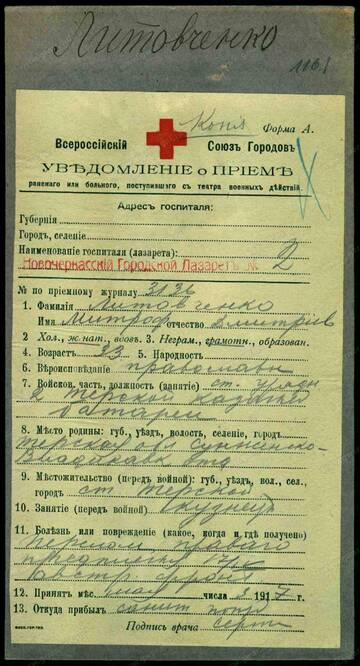 Литовченко
1161
Копія
Форма А.
Всероссійскій Союзъ Городовъ
УВѢДОМЛЕНІЕ о ПРІЕМѢ
раненаго или больного, поступившаго съ театра военныхъ дѣйствій.
Адресъ госпиталя:
Губернія
Городъ, селеніе
Наименованіе госпиталя (лазарета)
Новочеркасскій Городской Лазаретъ № 2
№ по пріемному журналу 3136
1. Фамилія Литовченко
Имя Митроф отчество Дмитріев
2 Хол., ж. нат., вдовъ. 3. Неграм., грамотн., образован.
4. Возрастъ 33 5. Народность
6. Вѣроисповѣданіе православн
7. Войсков. часть, должность (занятіе) ст. урядн
2 Терской казачьей
батареи
8. Мѣсто родины: губ., уѣздъ, волость, селеніе, городъ
Терской об Сунженско-
Владикавк
9. Мѣстожительство (передъ войной): губ., уѣзд., вол., сел.,
городъ ст Терской
10. Занятіе (передъ войной) кузнецъ
11. Болѣзнь или поврежденіе (какое, когда и гдѣ получено)
перелом праваго
предплечья
австр. фронт
12. Принятъ мѣс. мая числа 3 1917 г.
13. Откуда прибылъ санит поѣзд
Подпись врача